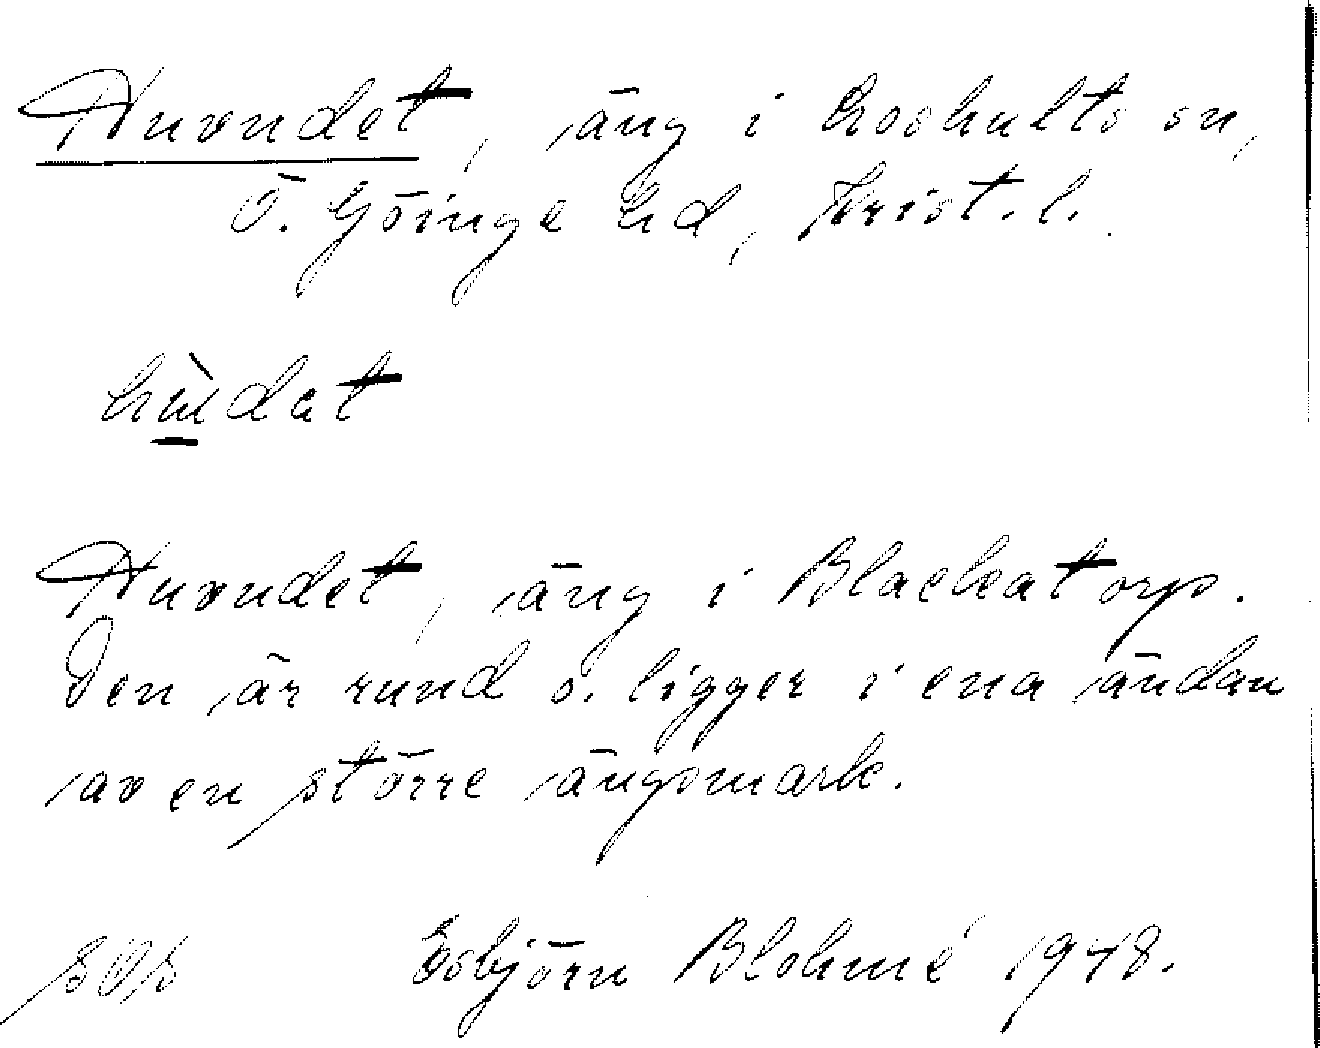 Huvudet, äng i Loshults sn,
Ö. Göinge hd, Krist. l.
hùdat
Huvudet, äng i Blackatorp.
Den är rund o. ligger i ena ändan
av en större ängsmark.
Esbjörn Blohmé 1948.